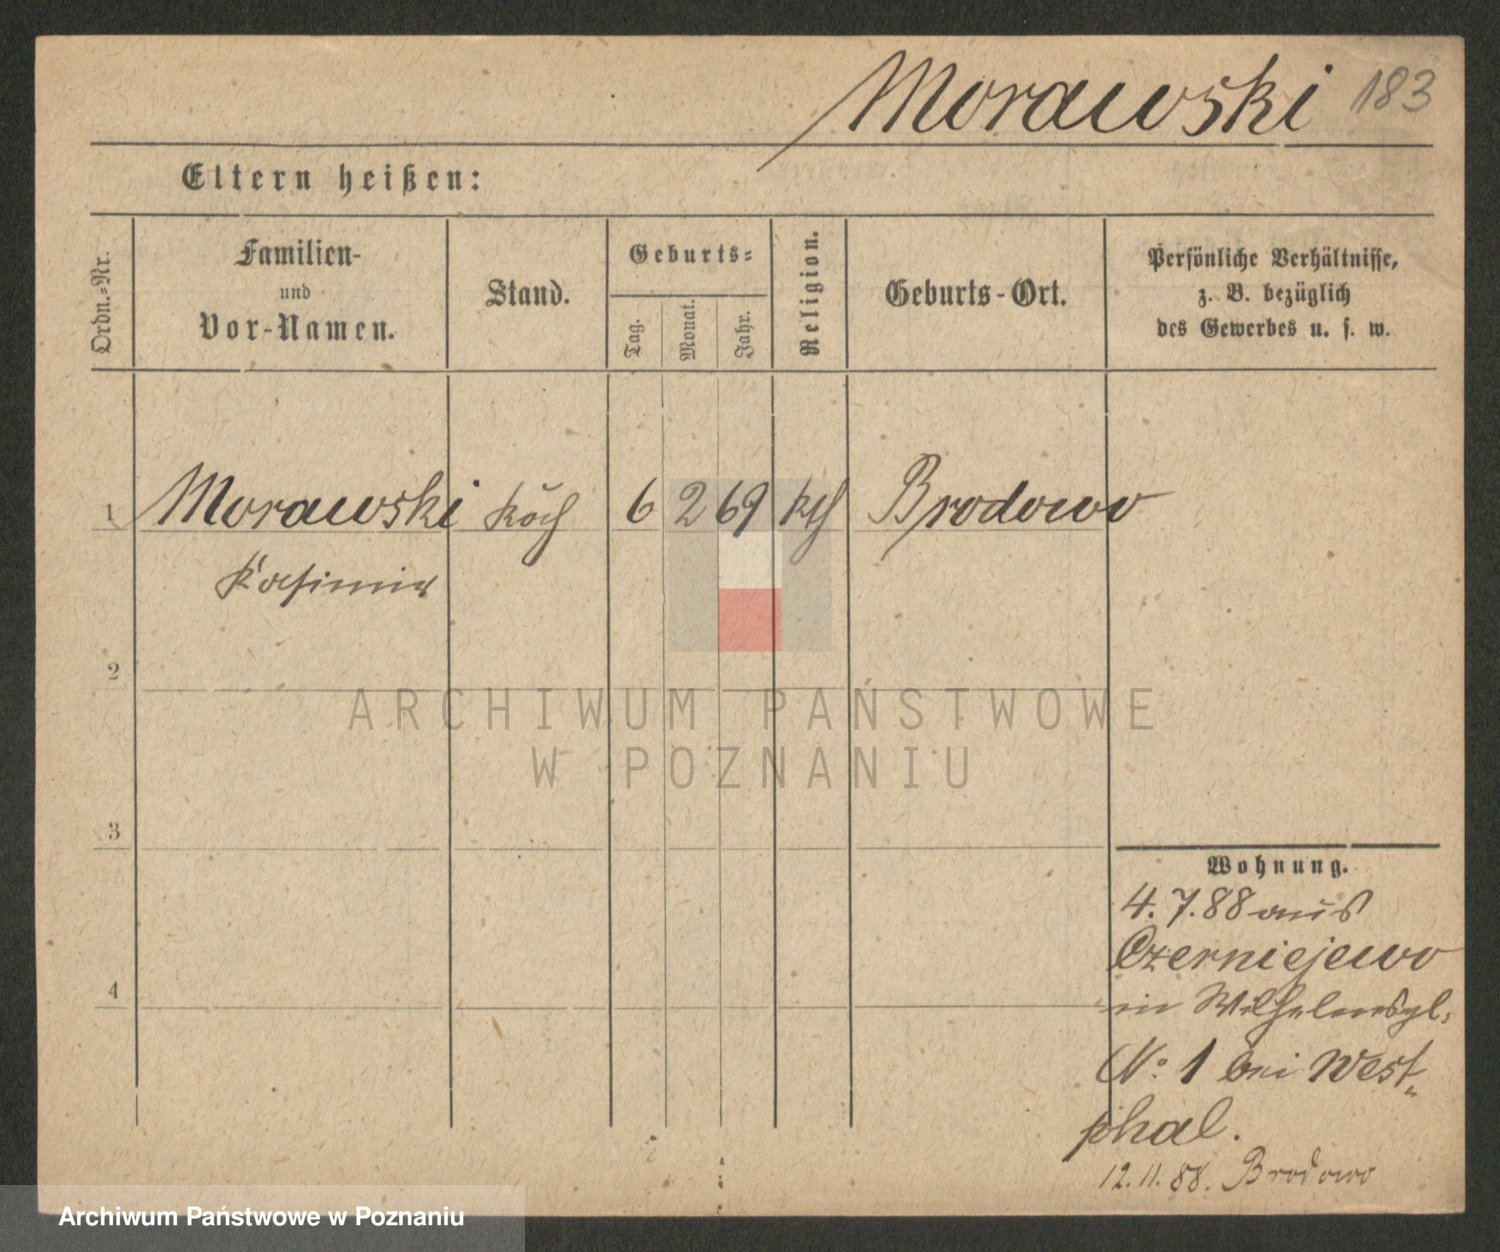 Morawski 183
Eltern heißen:
Ordn.-Nr.
Familien-
und
Vor-Namen.
Stand.
Geburts-
Tag.
Monat.
Jahr.
Religion.
Geburts-Ort.
Persönliche Verhältnisse,
z. B. bezüglich
des Gewerbes u. s. w.
1 Morawski Koch 6 2 69 kth Brodowo
Kasimir
2
ARCHIWUM PAŃSTWOWE
W POZNANIU
3
4
Wohnung.
4.7.88 aus
Czerniejewo
in Wilhelmspl.
No. 1 bei West-
phal.
12.11.88. Brodowo
Archiwum Państwowe w Poznaniu